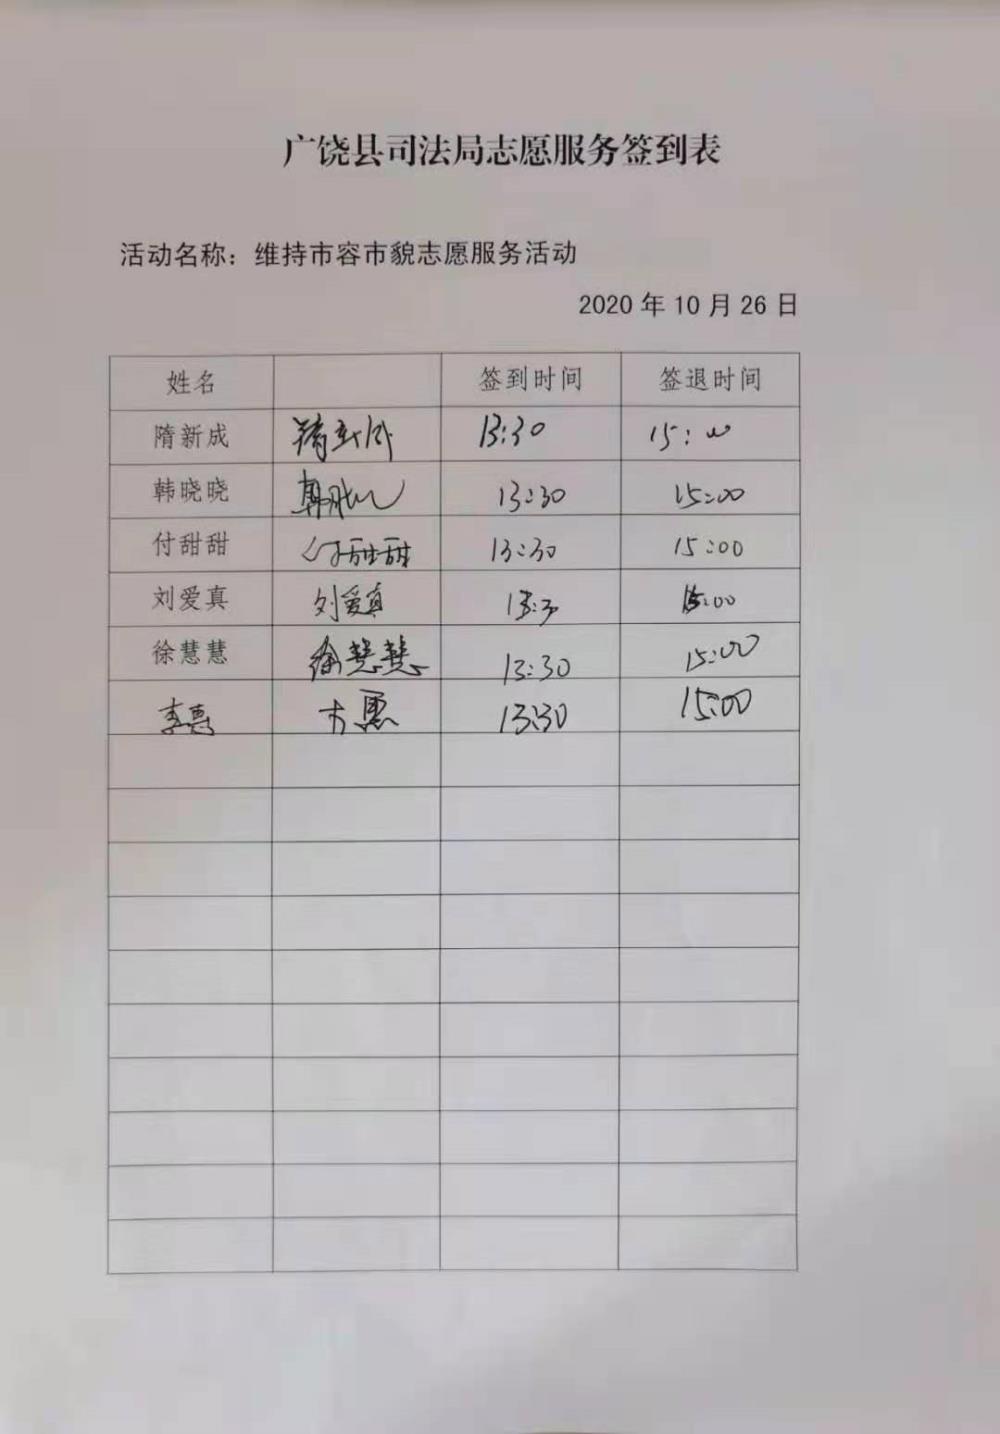 广饶县司法局志愿服务签到表
活动名称：维持市容市貌志愿服务活动
2020 年 10 月 26 日
姓名 签到时间 签退时间
隋新成 隋新成 13:30 15:00
韩晓晓 韩晓晓 13:30 15:00
付甜甜 付甜甜 13:30 15:00
刘爱真 刘爱真 15:00
徐慧慧 徐慧慧 13:30 15:00
李惠 13:30 15:00